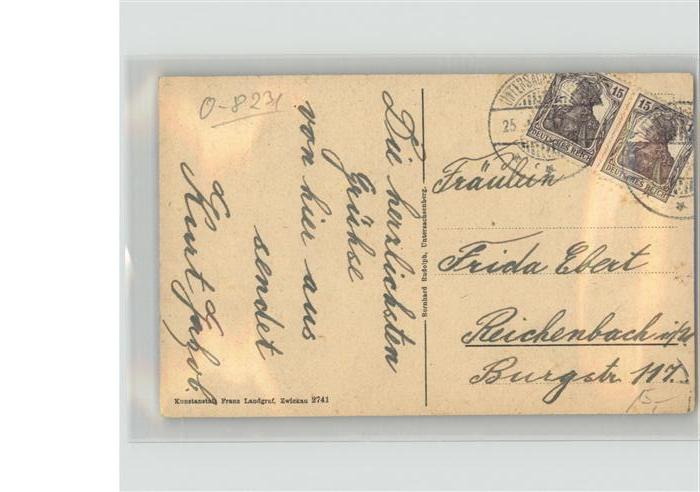 O-8231
Die herzlichsten
Grühse
von hier aus
sendet
Kurt Jakob.
Bernhard Rudolph, Untersachsenberg.
Kunstanstalt Franz Landgraf, Zwickau 2741
UNTERSACH
25
15
DEUTSCHES REICH
15
DEUTSCHES REICH
Fräulein
Frida Ebert
Reichenbach i/V
Burgstr 117.